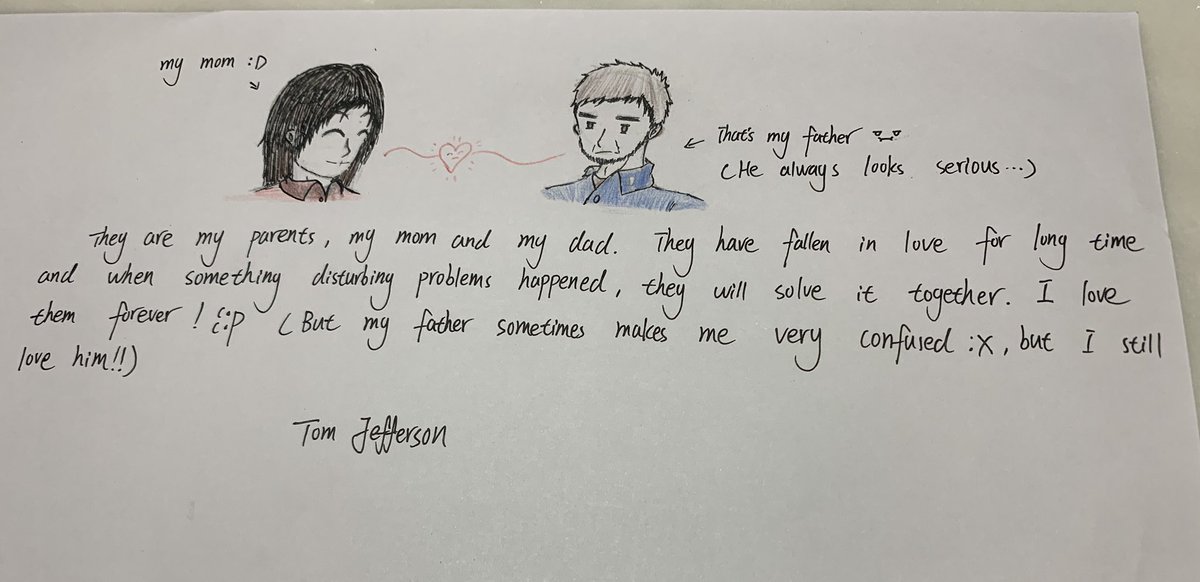 my mom :D
That's my father
(He always looks serious...)
They are my parents, my mom and my dad. They have fallen in love for long time
and when something disturbing problems happened, they will solve it together. I love
them forever! :P (But my father sometimes makes me very confused :X, but I still
love him!!)
Tom Jefferson